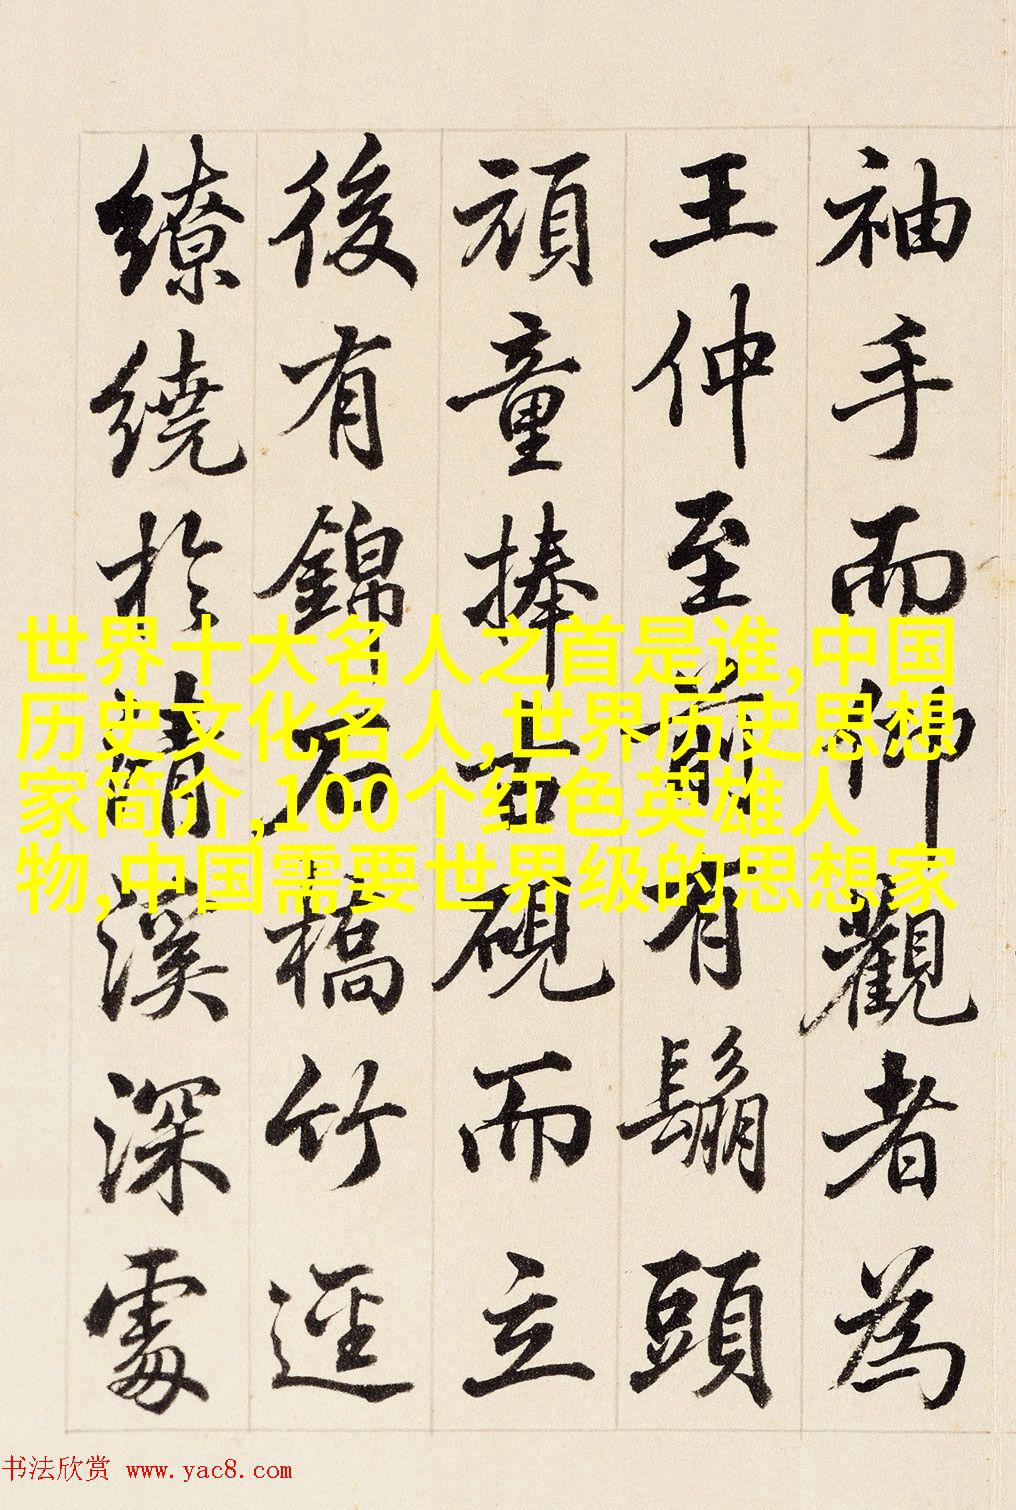 袖手而仰觀者為
王仲至前有鬅頭
頑童捧古硯而立
後有錦石橋竹逕
繚繞於清溪深處
世界十大名人之首是谁,中国
历史文化名人,世界历史思想
家简介,100个红色英雄人
物,中国需要世界级的思想家
书法欣赏 www.yac8.com